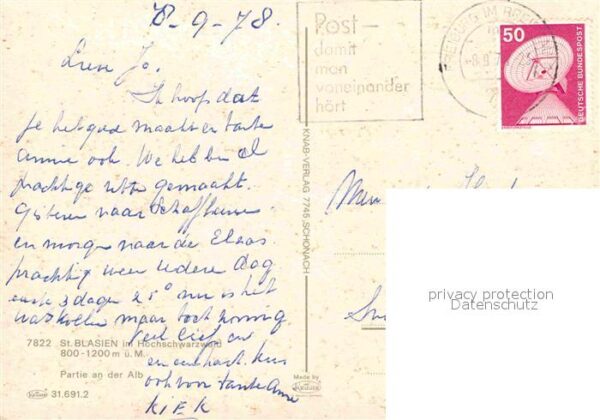 8-9-78.
Lieve Jo.
Ik hoop dat
je het goed maakt en tante
Annie ook. We hebben al
prachtige ritten gemaakt.
Gisteren naar Schaffhausen
en morgen naar de Elsas
prachtig weer iedere dag
eerste 3 dagen 25° nu is het
wat koeler maar toch zonnig
Veel liefs en
en een hart. kus
ook voor tante Anne
KIEK
7822 St. BLASIEN im Hochschwarzwald
800-1200 m ü. M.
Partie an der Alb
31.691.2
KNAB-VERLAG 7745 SCHONACH
Made by
Krüger
Post -
damit
man
voneinander
hört
FREIBURG IM BREISGAU
50
DEUTSCHE BUNDESPOST
privacy protection
Datenschutz